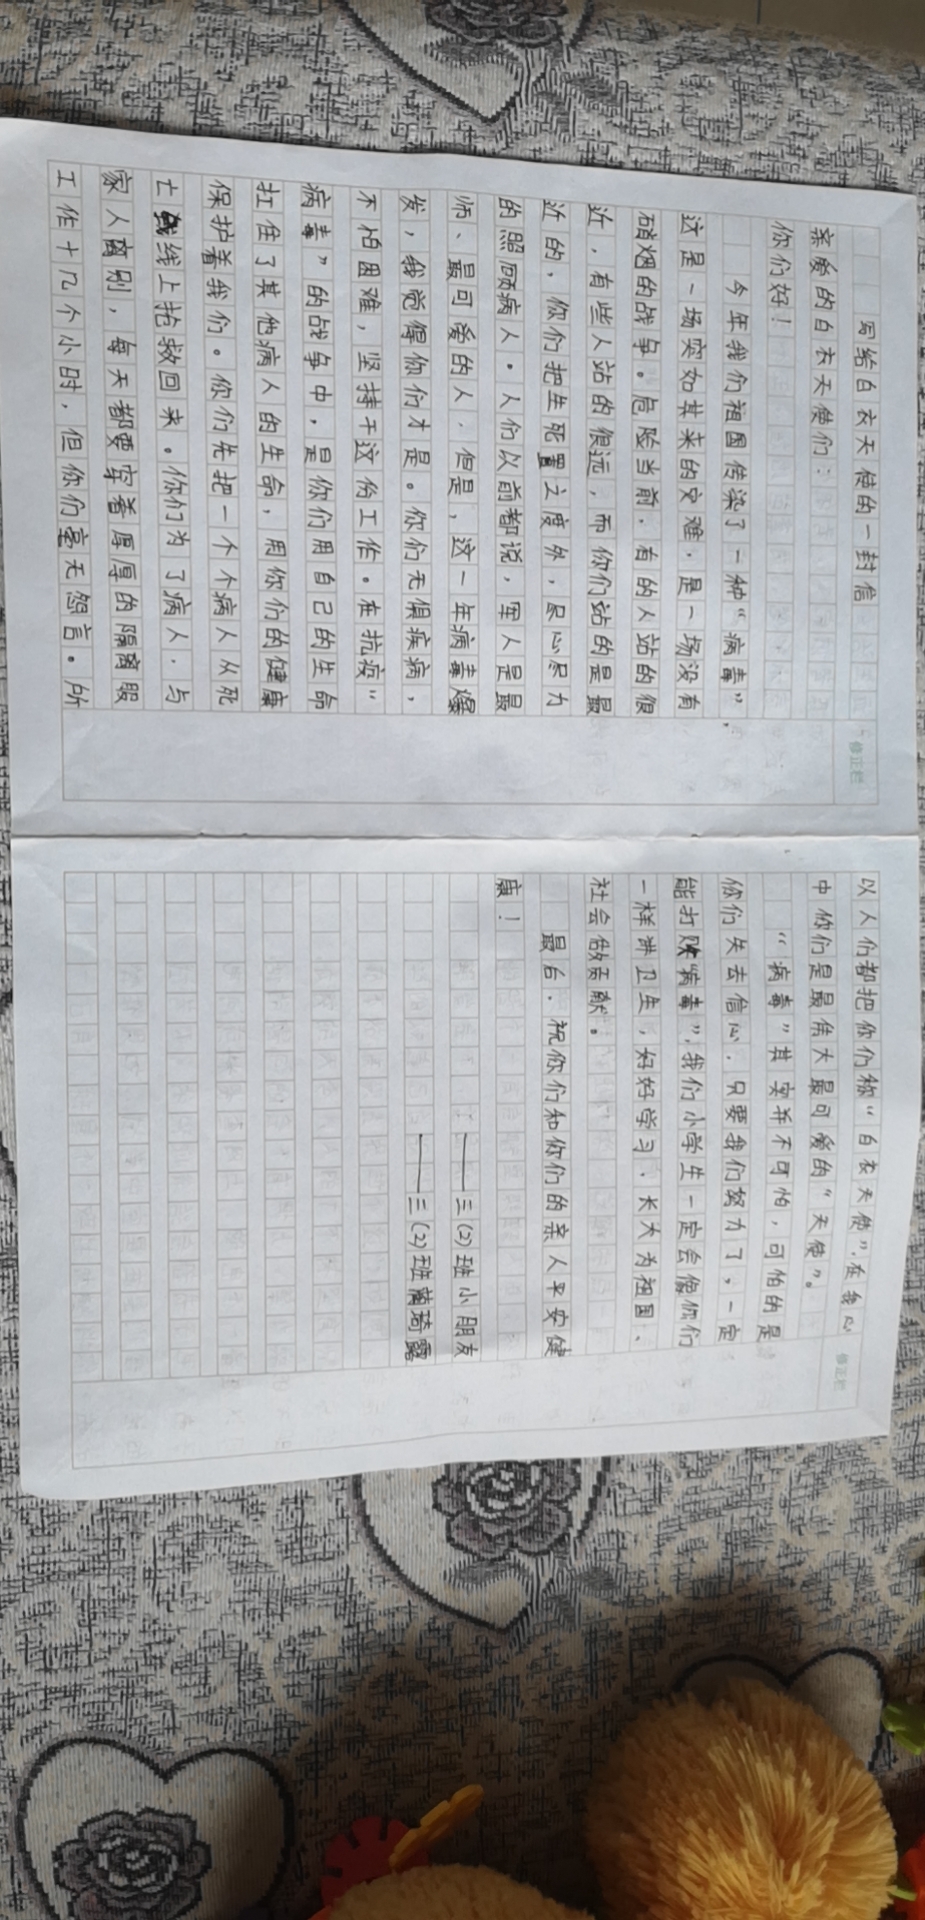 写给白衣天使的一封信
修正栏
亲爱的白衣天使们：
你们好！
今年我们祖国传染了一种“病毒”，
这是一场突如其来的灾难，是一场没有
硝烟的战争。危险当前，有的人站的很
近，有些人站的很远，而你们站的是最
近的，你们把生死置之度外，尽心尽力
的照顾病人。人们以前都说，军人是最
帅、最可爱的人，但是，这一年病毒爆
发，我觉得你们才是。你们无惧疾病，
不怕困难，坚持干这份工作。在抗疫“
病毒”的战争中，是你们用自己的生命
扛住了其他病人的生命，用你们的健康
保护着我们。你们先把一个个病人从死
亡线上抢救回来。你们为了病人，与
家人离别，每天都要穿着厚厚的隔离服
工作十几个小时，但你们毫无怨言。所
以人们都把你们称“白衣天使”，在我心
中你们是最伟大最可爱的“天使”。
修正栏
“病毒”其实并不可怕，可怕的是
你们失去信心，只要我们努力了，一定
能打败“病毒”，我们小学生一定会像你们
一样讲卫生，好好学习，长大为祖国、
社会做贡献。
最后，祝你们和你们的亲人平安健
康！
——三(2)班小朋友
——三(2)班 琦露